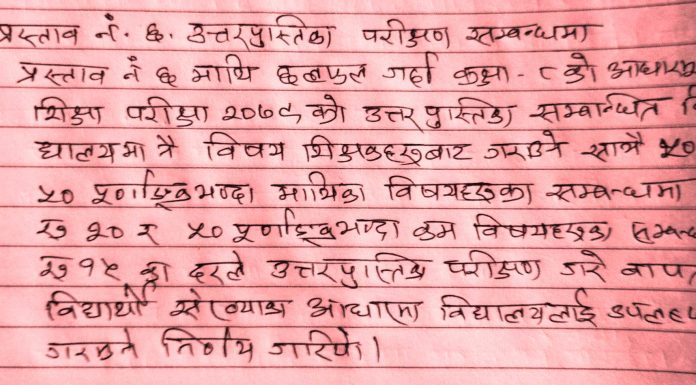 प्रस्ताव नं. ६. उत्तरपुस्तिका परीक्षण सम्बन्धमा
प्रस्ताव नं ६ माथि छलफल गर्दा कक्षा - ८ को आधारभ
शिक्षा परीक्षा २०७९ को उत्तर पुस्तिका सम्बान्धित वि
द्यालयमा नै विषय शिक्षकहरुबाट गराउने साथै ५०
५० पूर्णाङ्कभन्दा माथिका विषयहरुका सम्बन्धमा
रु २० र ५० पूर्णाङ्कभन्दा कम विषयहरुका सम्बन्ध
रु १५ का दरले उत्तरपुस्तिका परीक्षण गरे वापत
विद्यार्थी संख्याका आधारमा विद्यालयलाई उपलब्ध
गराउने निर्णय गरियो।